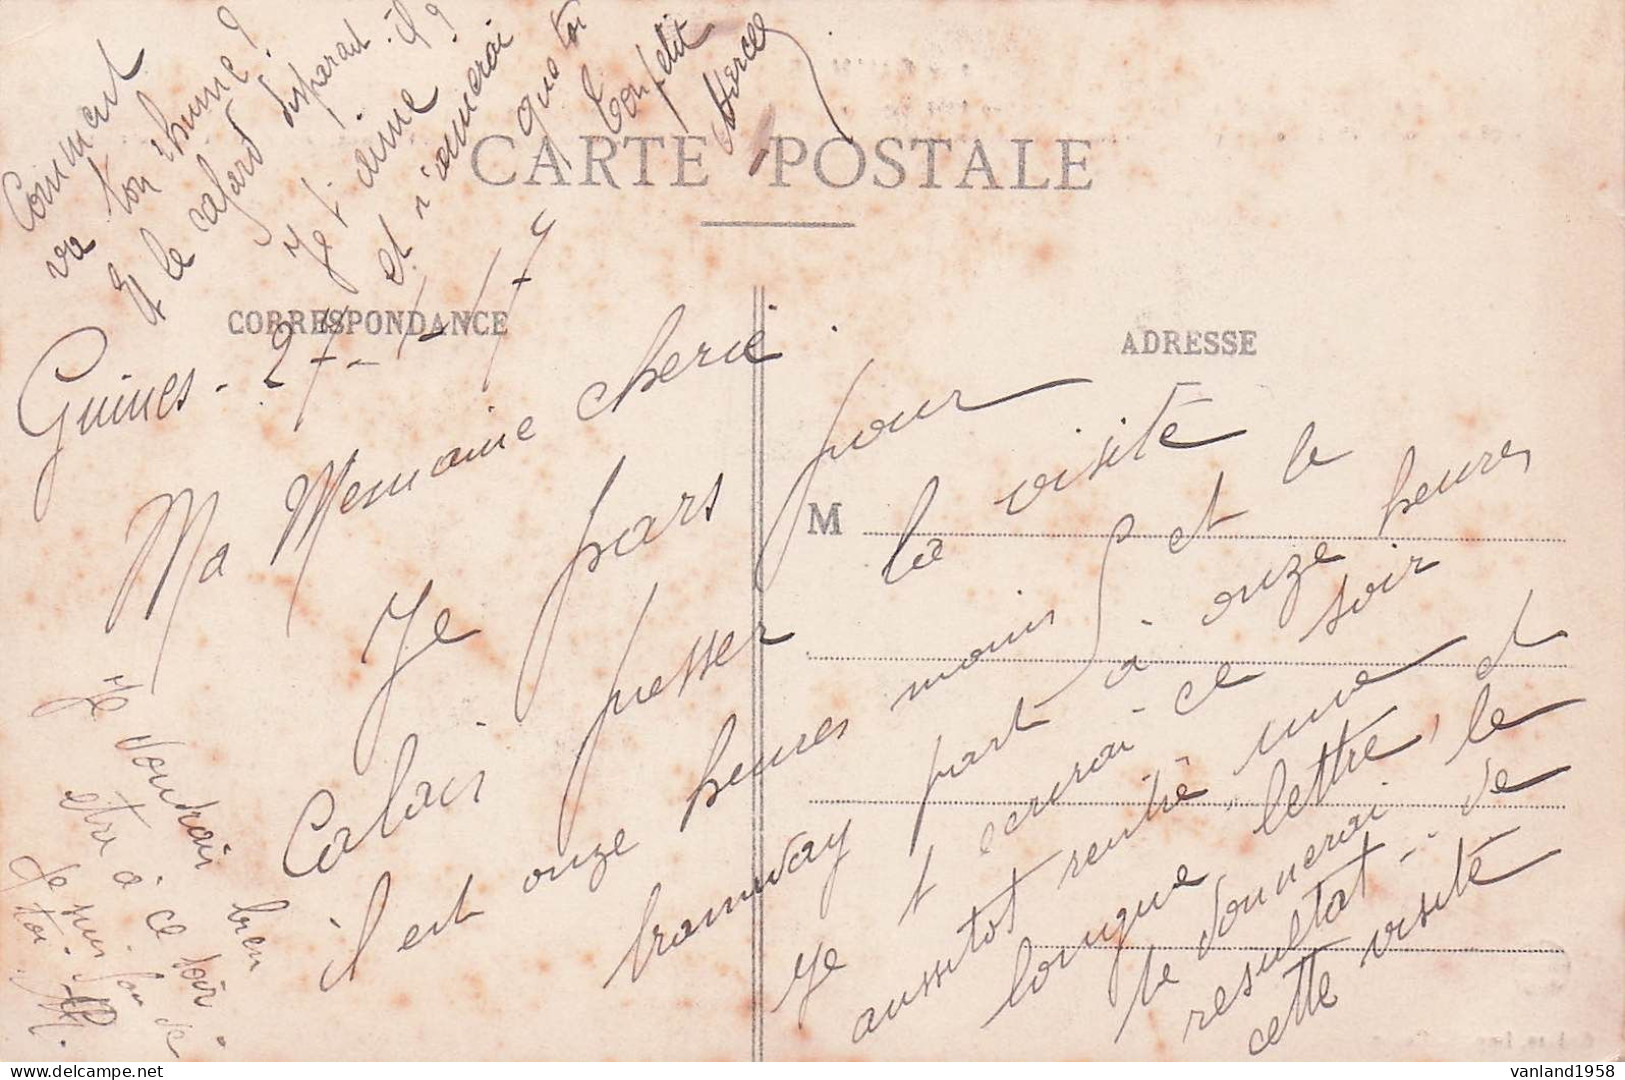 Comment
va ton rhume ?
Et le cafard disparait-il ?
Je t'aime
et n'aimerai
que toi
Ton petit
Marcel
CARTE POSTALE
CORRESPONDANCE
ADRESSE
M
Guines - 27-1-17
Ma Memaine cherie
Je pars pour
Calais passer la visite
il est onze heures moins 5 et le
tramway part à onze heures
Je t'ecrirai ce soir
aussitot rentré une
longue lettre, et
te donnerai le
resultat - de
cette visite
Je voudrais bien
etre à ce soir
Je suis fou de
toi.
vanland1958